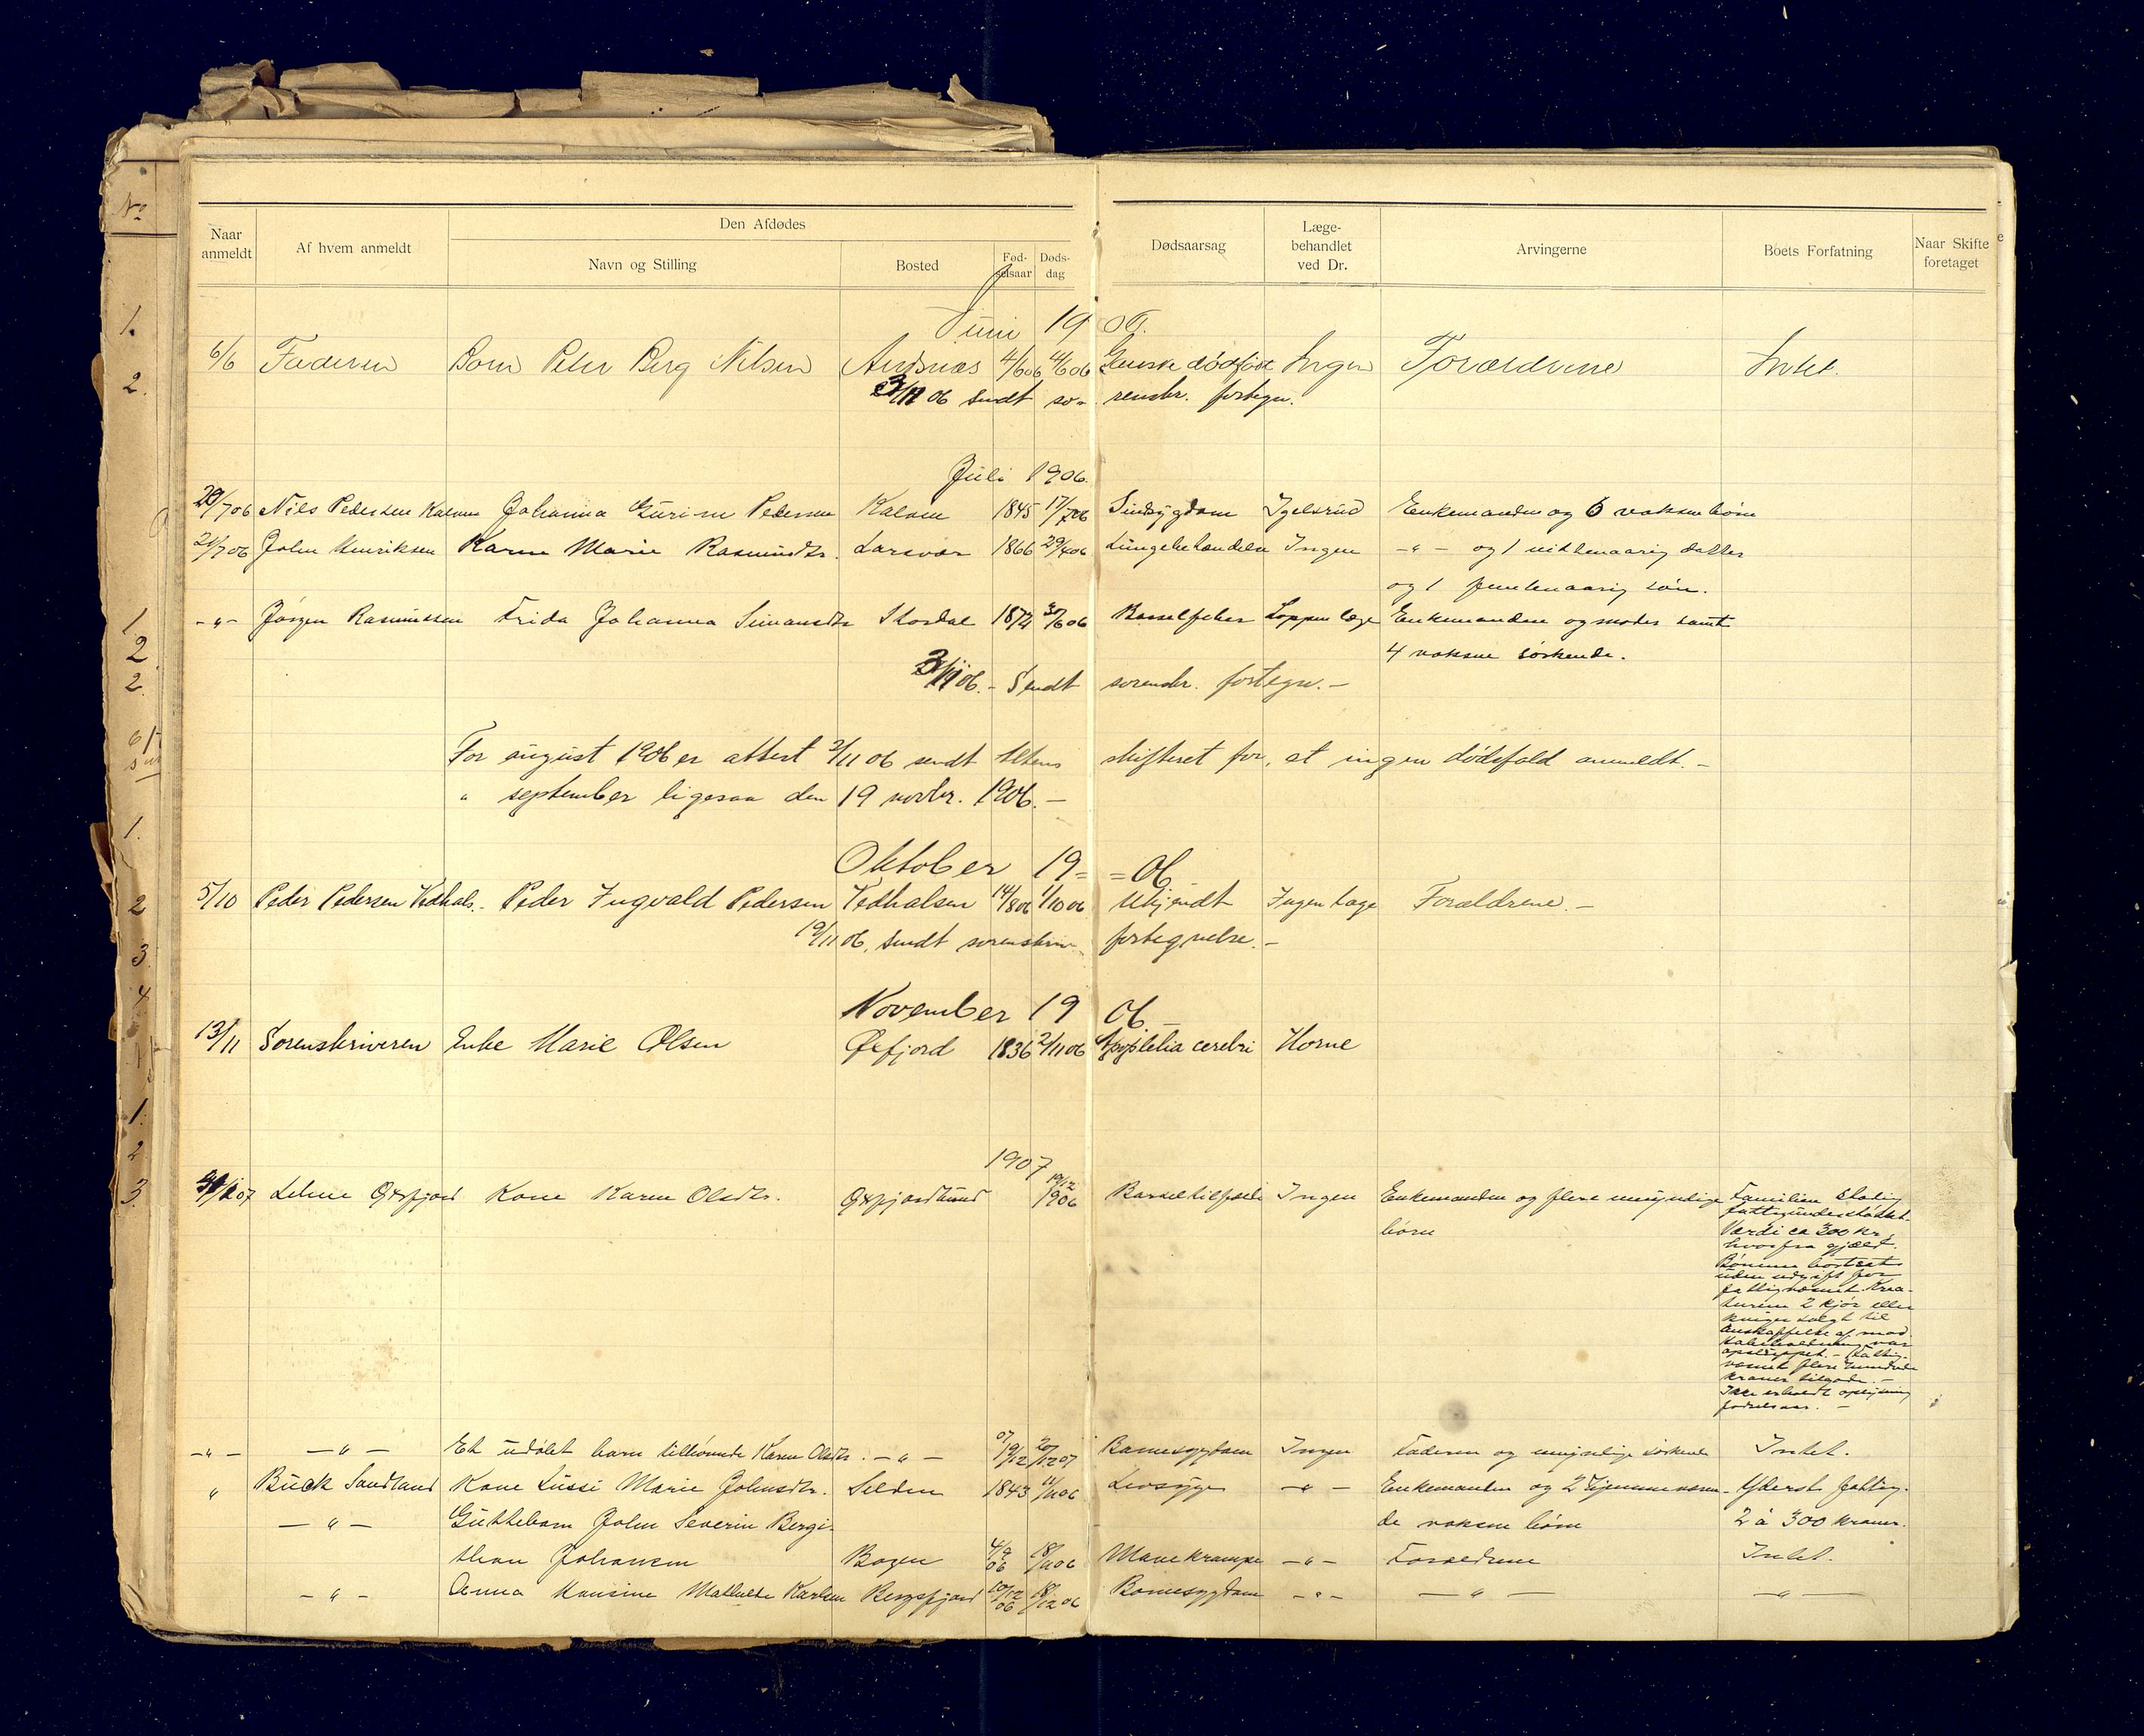 No
Naar anmeldt
Af hvem anmeldt
Den Afdødes
Navn og Stilling
Bosted
Fød-selsaar
Døds-dag
Dødsaarsag
Læge-behandlet ved Dr.
Arvingerne
Boets Forfatning
Naar Skifte foretaget
Juni 19 06.
6/6 Faderen Barn Peter Berg Nilsen Andsnæs 4/6 06 4/6 06 Ganske dødfødt Ingen Forældrene Intet.
3/11 06 sendt sorenskr. fortegn.
Juli 1906.
20/7 06 Nils Pedersen Johanna Gurine Pedersen 1845 17/7 06 Igelsrud Enkemanden og 6 voksne børn
21/7 06 John Henriksen Karen Marie Rasmusdtr. Larsvær 1866 29/4 06 Lungebetændelse Ingen - " - og 1 datter
og 1 femtenaarig søn.
- " - Jørgen Rasmussen Frida Johanna Simonsdtr Stordal 1874 30/6 06 Barselfeber Loppen læge Enkemanden og moder samt
4 voksne søskende.
3/11 06. - Sendt sorenskr. fortegn. -
For august 1906 er attest 3/11 06 sendt Altens skifteret for, at ingen dødsfald anmeldt. -
" september ligesaa den 19 novbr. 1906. -
Oktober 19 = = 06
5/10 Peder Pedersen Vedhals. Peder Ingvald Pedersen Vedhalsen 14/8 06 1/10 06 Ukjendt Ingen læge Forældrene. -
19/11 06. sendt sorenskriv. fortegnelse. -
November 19 06
13/11 Sorenskriveren Enke Marie Olsen Øxfjord 1836 2/11 06 cerebri Horne
1907
Øxfjord Kone Karen Olsdtr. Øxfjordbund 19/12 1906 Ingen Enkemanden og flere umyndige Familien stadig
børn fattigunderstøttet.
Værdi ca 300 kr,
hvorfra gjæld.
Børnene bortsat
uden udgift for
fattigvæsnet. Krea-
turene 2 kjør eller
kviger solgt til
Anskaffelse af mad.
var
- Fattig-
væsnet flere hundrede
kroner tilgode. -
Ikke erholdt oplysning
fødselsaar. -
- " - - " - Et udøbt barn tilhørende Karen Olsdtr. - " - 07 19/12 Barnesygdom Ingen Faderen og umyndige søskende Intet.
" Buck Sandland Kone Lussi Marie Johnsdtr. Selden 1843 - " - Enkemanden og 2 hjemmeværen- Yderst fattig.
- " - Guttebarn John Severin Bergi- de voksne børn 2 à 300 kroner.
thon Johansen Bogen 4/9 06 18/11 06 Mavekrampe - " - Forældrene Intet.
- " - Anna Hansine Mathilde Karlsen Bergsfjord 10/12 06 18/12 06 Barnesygdom - " - - " - - " -